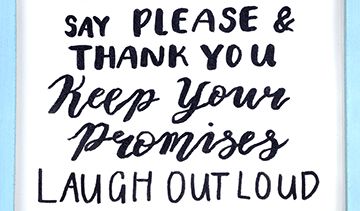 SAY PLEASE &
THANK YOU
Keep Your
Promises
LAUGH OUT LOUD